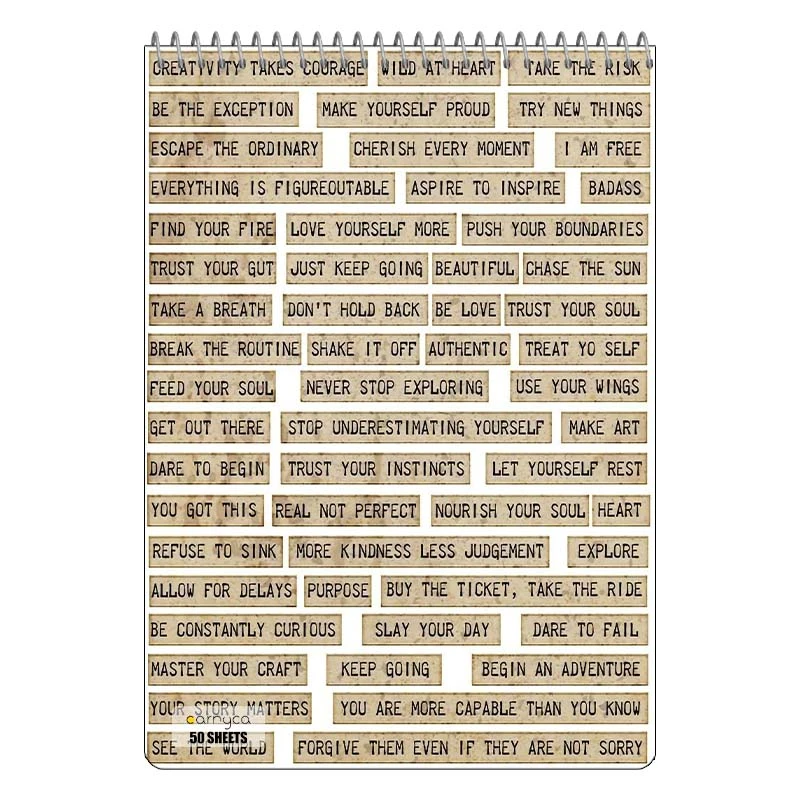 CREATIVITY TAKES COURAGE WILD AT HEART TAKE THE RISK
BE THE EXCEPTION MAKE YOURSELF PROUD TRY NEW THINGS
ESCAPE THE ORDINARY CHERISH EVERY MOMENT I AM FREE
EVERYTHING IS FIGUREOUTABLE ASPIRE TO INSPIRE BADASS
FIND YOUR FIRE LOVE YOURSELF MORE PUSH YOUR BOUNDARIES
TRUST YOUR GUT JUST KEEP GOING BEAUTIFUL CHASE THE SUN
TAKE A BREATH DON'T HOLD BACK BE LOVE TRUST YOUR SOUL
BREAK THE ROUTINE SHAKE IT OFF AUTHENTIC TREAT YO SELF
FEED YOUR SOUL NEVER STOP EXPLORING USE YOUR WINGS
GET OUT THERE STOP UNDERESTIMATING YOURSELF MAKE ART
DARE TO BEGIN TRUST YOUR INSTINCTS LET YOURSELF REST
YOU GOT THIS REAL NOT PERFECT NOURISH YOUR SOUL HEART
REFUSE TO SINK MORE KINDNESS LESS JUDGEMENT EXPLORE
ALLOW FOR DELAYS PURPOSE BUY THE TICKET, TAKE THE RIDE
BE CONSTANTLY CURIOUS SLAY YOUR DAY DARE TO FAIL
MASTER YOUR CRAFT KEEP GOING BEGIN AN ADVENTURE
YOUR STORY MATTERS YOU ARE MORE CAPABLE THAN YOU KNOW
carnyca
50 SHEETS
SEE THE WORLD FORGIVE THEM EVEN IF THEY ARE NOT SORRY